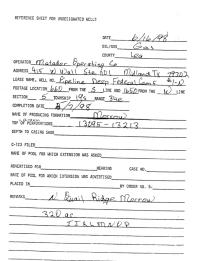 REFERENCE SHEET FOR UNDESIGNATED WELLS
DATE 6/16/98
OIL/GAS Gas
COUNTY Lea
OPERATOR Matador Operating Co
ADDRESS 415 W Wall Ste 1101 Midland Tx 79701
LEASE NAME, WELL NO. Pipeline Deep Federal Com #1-N
FOOTAGE LOCATION 660 FROM THE S LINE AND 1650 FROM THE W LINE
SECTION 5 TOWNSHIP 19S RANGE 34E
COMPLETION DATE
NAME OF PRODUCING FORMATION Morrow
TOP OF PERFORATIONS 13095-13213
DEPTH TO CASING SHOE
C-123 FILED
NAME OF POOL FOR WHICH EXTENSION WAS ASKED
ADVERTISED FOR HEARING CASE NO.
NAME OF POOL FOR WHICH EXTENSION WAS ADVERTISED
PLACED IN BY ORDER NO. R-
REMARKS Quail Ridge Morrow
320 ac